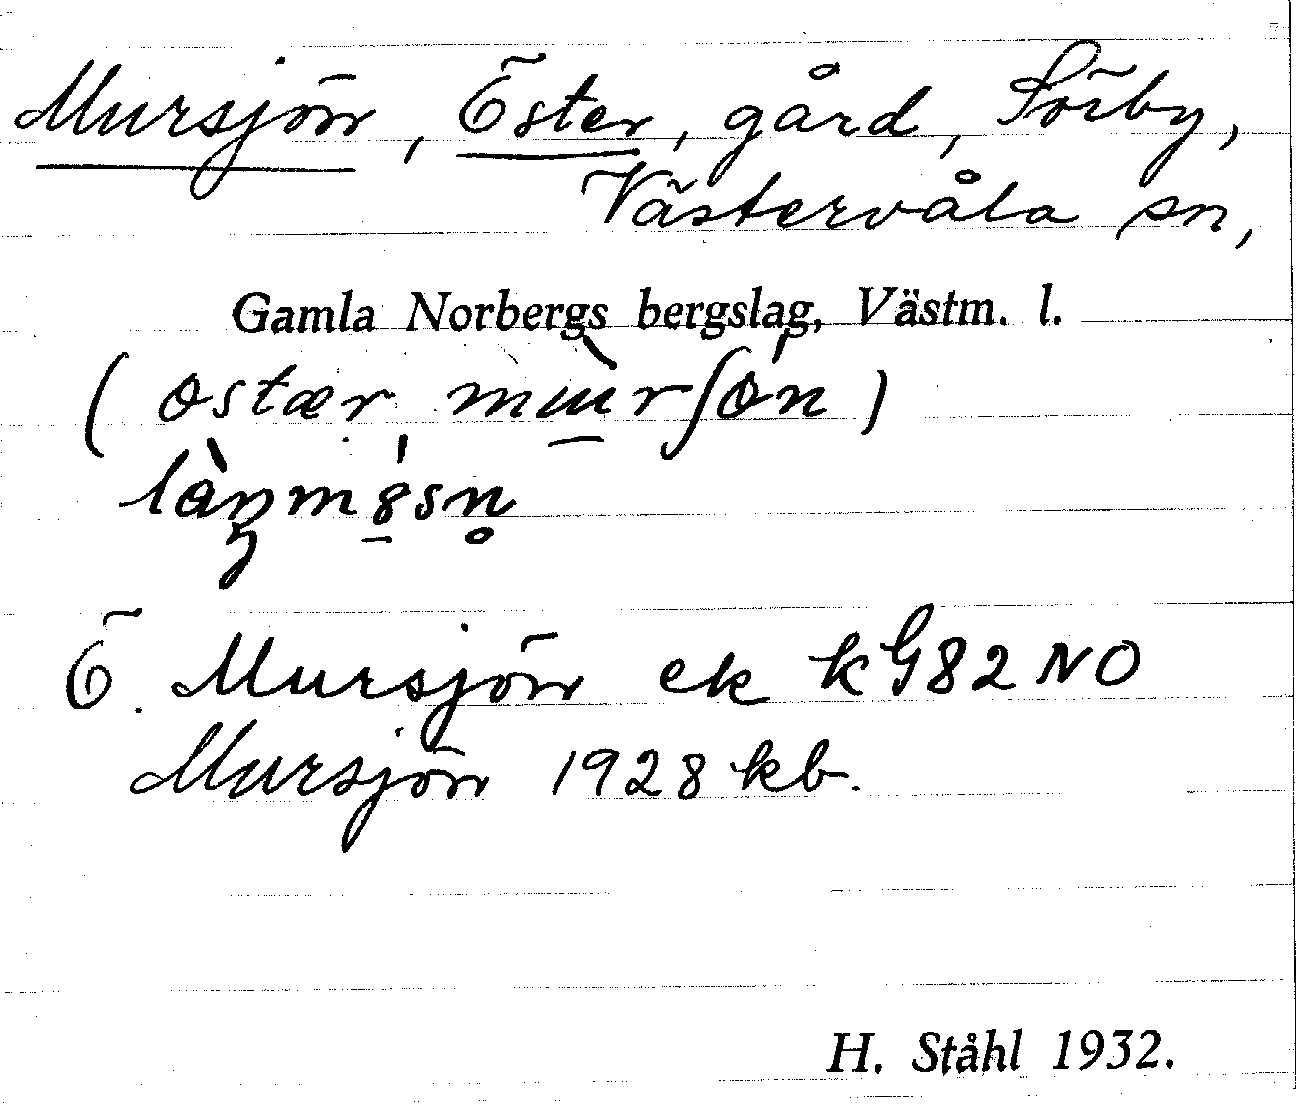 Mursjön, Öster, gård, Sörby,
Västervåla sn,
Gamla Norbergs bergslag, Västm. l.
( ostær
Ö. Mursjön ek kG82NO
Mursjön 1928 kb.
H. Ståhl 1932.